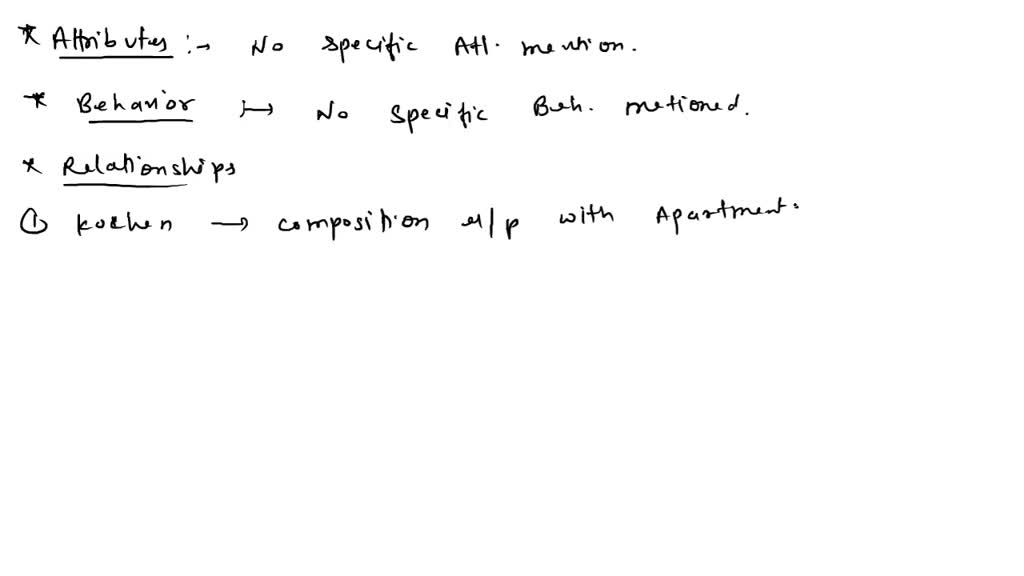 * Attributes :→ No specific Att. mention.
* Behavior ↦ No specific Beh. metioned.
* Relationships
① → composition r/p with Apartment.